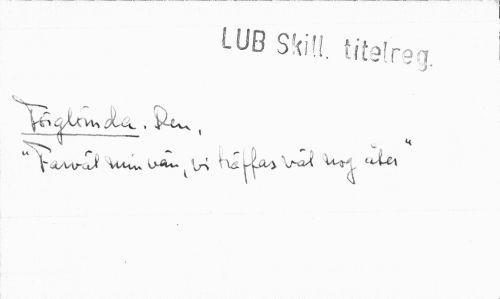 LUB Skill. titelreg.
Förglömda. Den,
"Farväl min vän, vi träffas väl nog åter"